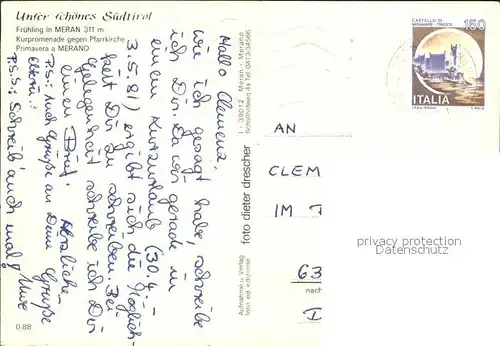 Unser schönes Südtirol
Frühling in MERAN 311 m
Kurpromenade gegen Pfarrkirche
Primavera a MERANO
Hallo Clemens,
wie ich gesagt habe, schreibe
ich Dir. Da wir gerade in
einem Kurzurlaub (30.4. -
3.5.81) ergibt sich die Möglich-
keit Dir zu schreiben. Bei
Gelegenheit schreibe ich Dir
einen Brief.
Herzliche
Grüße
Uwe
P.S.: Auch Grüße an Deine
Eltern.
P.S.S.: Schreib' auch mal!
I - 39012 Meran - Merano
foto dieter drescher
Aufnahme u. Verlag
foto ed. edizione
CASTELLO DI
MIRAMARE · TRIESTE
150
ITALIA
AN
CLEM
IM
63
nach
privacy protection
Datenschutz
D 88